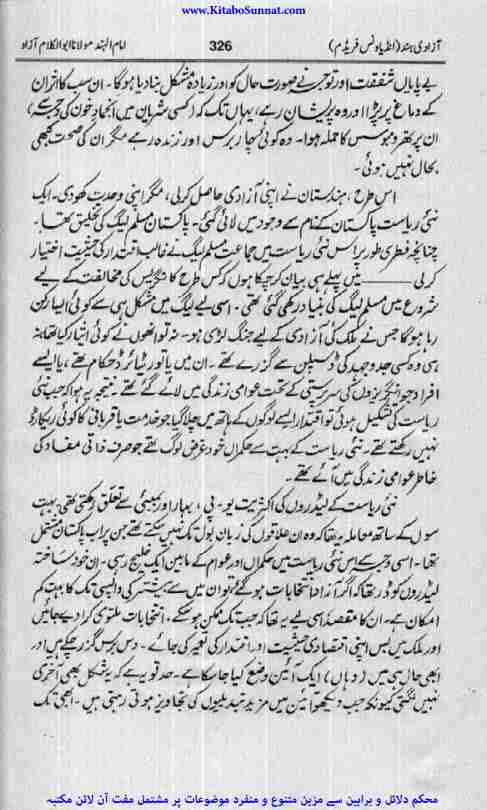 www.KitaboSunnat.com
آزادی ہند (انڈیا ونس فریڈم) 326 امام الہند مولانا ابوالکلام آزاد
بے پایاں شفقت اور توجہ نے صورت حال کو اور زیادہ مشکل بنا دیا ہوگا۔ ان سب کا اثر ان
کے دماغ پر پڑا اور وہ پریشان رہے، یہاں تک کہ (کسی شریان میں انجماد خون کی وجہ سے)
ان پر تھرومبوسس کا حملہ ہوا۔ وہ کوئی چار برس اور زندہ رہے مگر ان کی صحت کبھی
بحال نہیں ہوئی۔
اس طرح، ہندستان نے اپنی آزادی حاصل کرلی، مگر اپنی وحدت کھودی۔ ایک
نئی ریاست پاکستان کے نام سے وجود میں لائی گئی۔ پاکستان مسلم لیگ کی تخلیق تھا۔
چنانچہ فطری طور پر اس نئی ریاست میں جماعت مسلم لیگ نے غالب اقتدار کی حیثیت اختیار
کرلی ——— میں پہلے ہی بیان کرچکا ہوں کس طرح کانگریس کی مخالفت کے لیے
شروع میں مسلم لیگ کی بنیاد رکھی گئی تھی۔ اسی لیے لیگ میں مشکل ہی سے کوئی ایسا رکن
رہا ہوگا جس نے ملک کی آزادی کے لیے جنگ لڑی ہو۔ نہ تو انھوں نے کوئی ایثار کیا تھا نہ
ہی وہ کسی جدوجہد کی ڈسپلن سے گزرے تھے۔ ان میں یا تو ریٹائرڈ حکام تھے، یا ایسے
افراد جو انگریزوں کی سرپرستی کے تحت عوامی زندگی میں لائے گئے تھے۔ نتیجہ یہ ہوا کہ جب نئی
ریاست کی تشکیل ہوئی تو اقتدار ایسے لوگوں کے ہاتھ میں چلا گیا جو خدمت یا قربانی کا کوئی ریکارڈ
نہیں رکھتے تھے۔ نئی ریاست کے بہت سے حکمراں خود غرض لوگ تھے جو صرف ذاتی مفاد کی
خاطر عوامی زندگی میں آئے تھے۔
نئی ریاست کے لیڈروں کی اکثریت یو۔ پی، بہار اور بمبئی سے تعلق رکھتی تھی بہت
سوں کے ساتھ معاملہ یہ تھا کہ وہ ان علاقوں کی زبان بول تک نہیں سکتے تھے جن پر اب پاکستان مشتمل
تھا۔ اسی وجہ سے اس نئی ریاست میں حکمراں اور عوام کے مابین ایک خلیج رہی۔ ان خود ساختہ
لیڈروں کو ڈر تھا کہ اگر آزاد انتخابات ہوگئے تو ان میں سے بیشتر کی واپسی تک کا بہت کم
امکان ہے۔ ان کا مقصد اسی لیے یہ تھا کہ جب تک ممکن ہوسکے، انتخابات ملتوی کرادیے جائیں
اور ملک میں بس اپنی اقتصادی حیثیت اور اقتدار کی تعمیر کی جائے۔ دس برس گزر چکے ہیں اور
ابھی حال ہی میں (وہاں) ایک آئین وضع کیا جاسکا ہے۔ حد تو یہ ہے کہ یہ شکل بھی آخری
نہیں لگتی کیونکہ جب دیکھو آئین میں مزید تبدیلیوں کی تجاویز ہوتی رہتی ہیں۔ ابھی تک
محکم دلائل و براہین سے مزین متنوع و منفرد موضوعات پر مشتمل مفت آن لائن مکتبہ